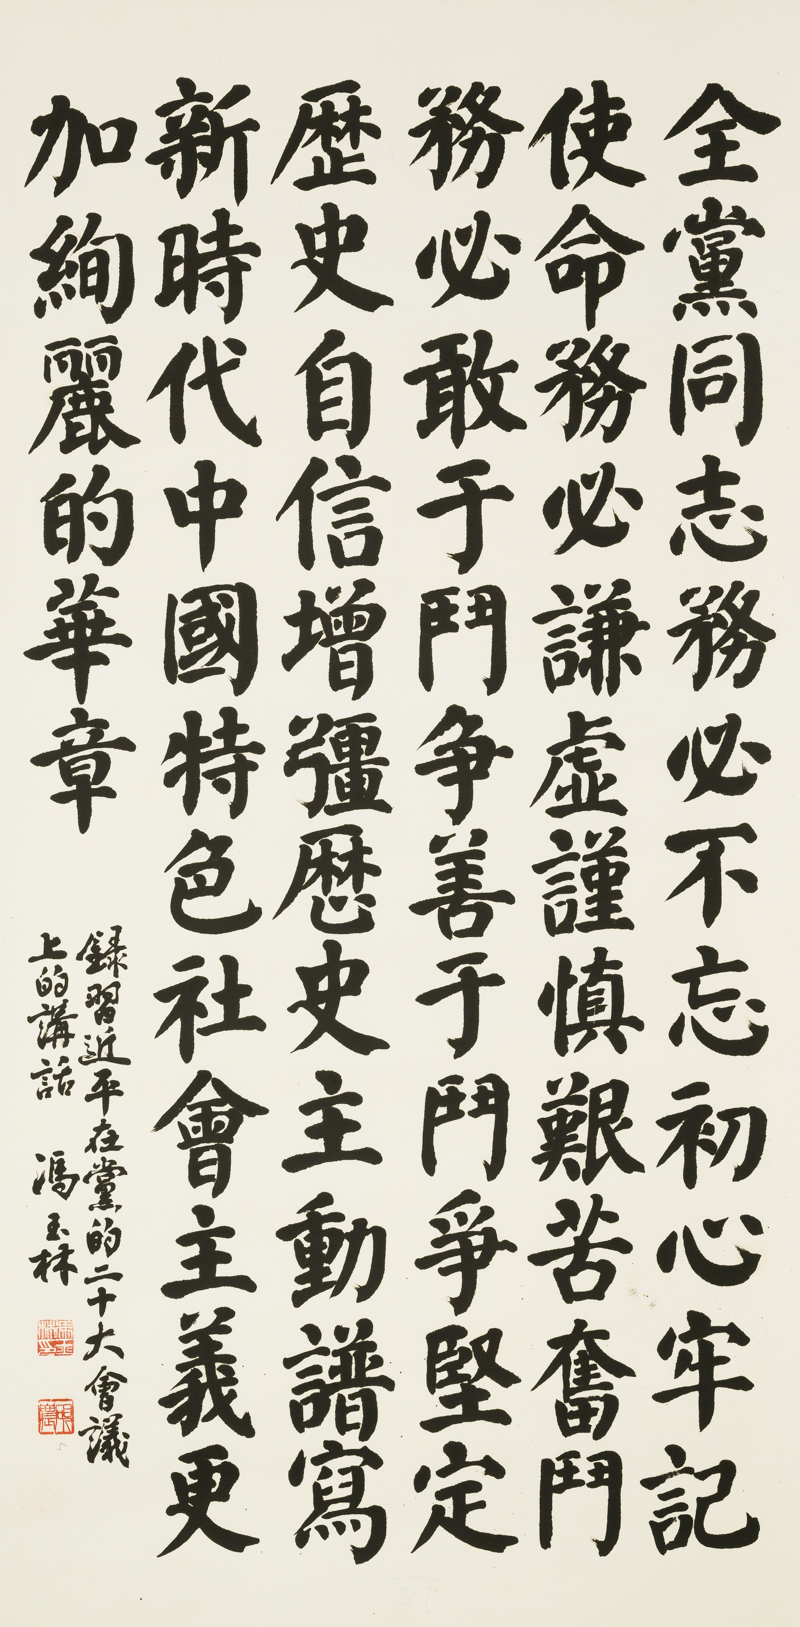 全黨同志務必不忘初心牢記
使命務必謙虛謹慎艱苦奮鬥
務必敢于鬥争善于鬥爭堅定
歷史自信增彊歷史主動譜寫
新時代中國特色社會主義更
加絢麗的華章
錄習近平在黨的二十大會議
上的講話 馮玉林